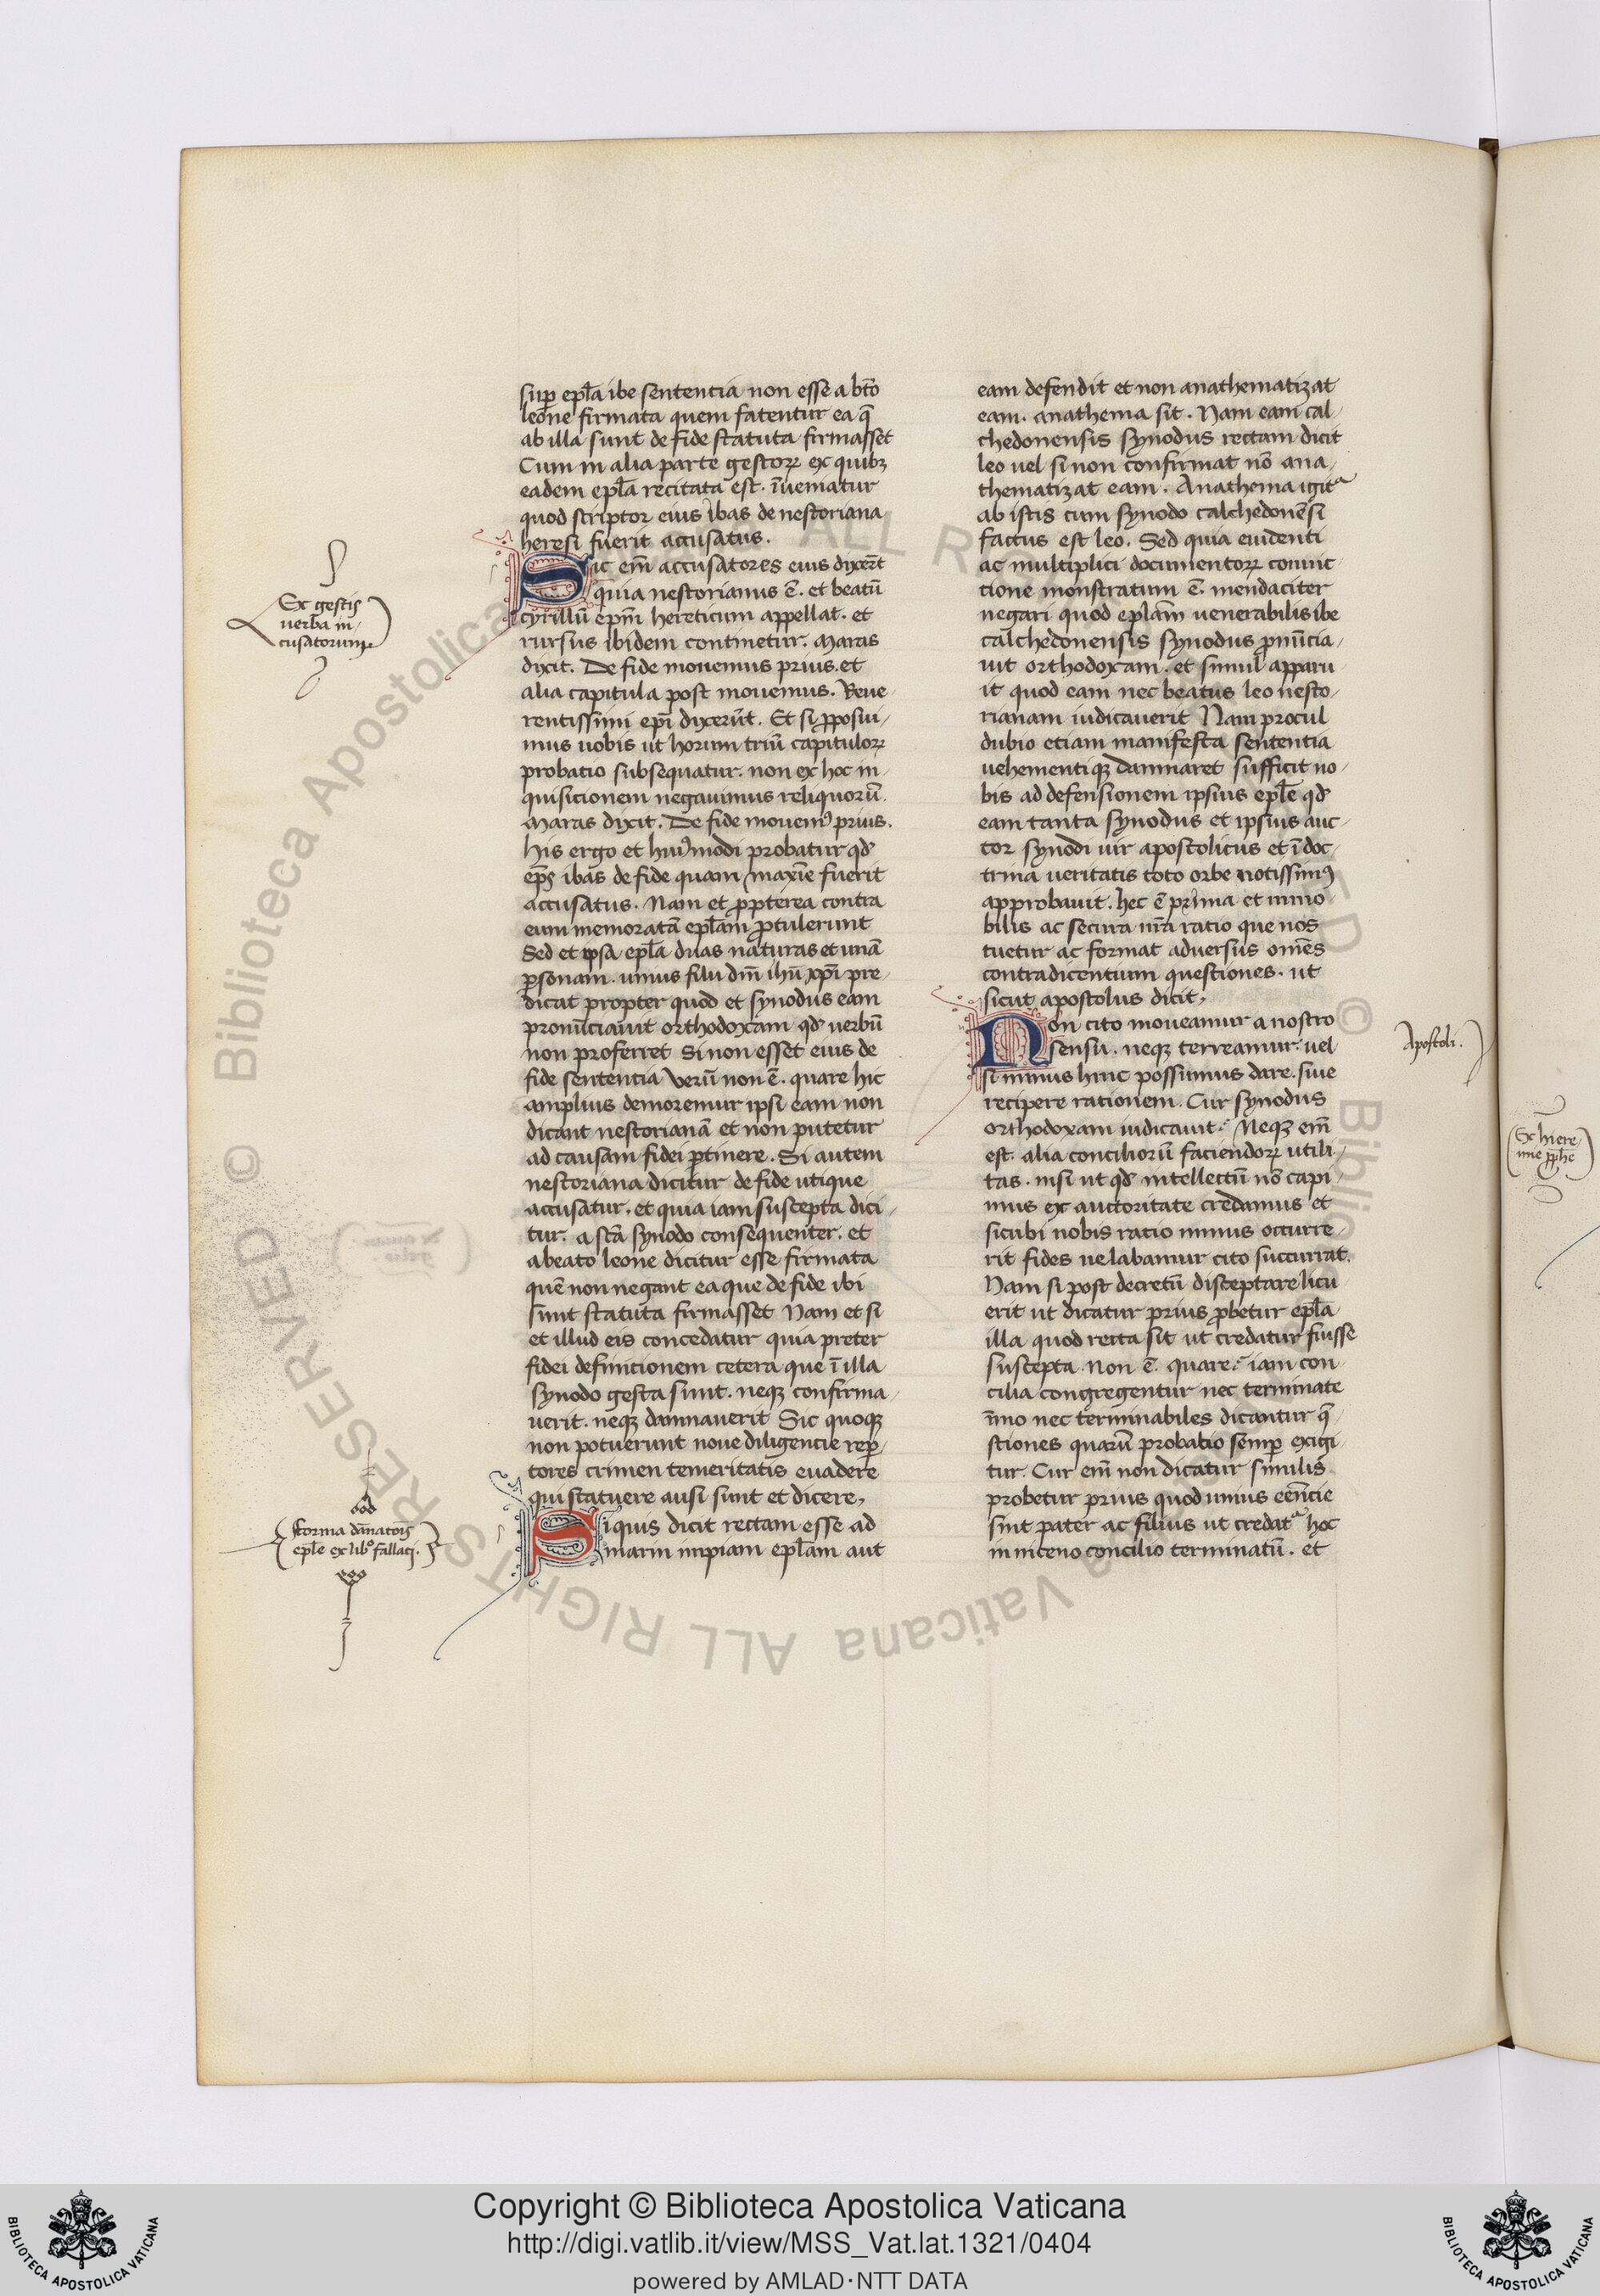 sup epl̄a ibe sententia non esse a bt̄o
leone firmata quem fatentur ea q̄
ab illa sunt de fide statuta firmasset
Cum in alia parte gestorꝝ ex quibꝫ
eadem epl̄a recitata est. īuematur
quod scriptor eius ibas de nestoriana
heresi fuerit accusatus.
Sic em̄ accusatores eius dixer̄t
quia nestorianus ē. et beatū
cyrillū epm̄ hereticum appellat. et
rursus ibidem continetur. Maras
dixit. De fide mouemus prius. et
alia capitula post mouemus. Reue
rentissimi ep̄i dixerūt. Et si ꝓposui
mus uobis ut horum triū capitulorꝝ
probatio subsequatur. non ex hoc in
quisicionem negauimus reliquorū.
Maras dixit. De fide mouemꝰ prius.
His ergo et huiꝰmodi probatur qd̓
ep̄s ibas de fide quam maxīe fuerit
accusatus. Nam et ꝓpterea contra
eum memoratā epl̄am ꝓtulerunt
Sed et ipsa epl̄a duas naturas et unā
ꝑsonam. unius filii dn̄i ihū xp̄i pre
dicat propter quod et synodus eam
pronūciauit orthodoxam qd̓ uerbū
non proferret Si non esset eius de
fide sententia Verū non ē. quare hic
amplius demoremur ipsi eam non
dicant nestorianā et non putetur
ad causam fidei ꝑtinere. Si autem
nestoriana dicitur de fide utique
accusatur. et quia iam suscepta dici
tur. a sc̄a synodo consequenter. et
a beato leone dicitur esse firmata
quē non negant ea que de fide ibi
sunt statuta firmasset Nam et si
et illud eis concedatur quia preter
fidei definicionem cetera que ī illa
synodo gesta sunt. neqꝫ confirma
uerit. neqꝫ damnauerit Sic quoqꝫ
non potuerunt noue diligencie reꝑ
tores crimen temeritatis euadere
qui statuere ausi sunt et dicere,
Si quis dicit rectam esse ad
marin impiam epl̄am aut
eam defendit et non anathematizat
eam. anathema sit. Nam eam cal
chedonensis synodus rectam dicit
leo uel si non confirmat nō ana
thematizat eam. Anathema igit᷑
ab istis cum synodo calchedonēsi
factus est leo. Sed quia euidenti
ac multiplici documentorꝝ conuic
tione monstratum ē. mendaciter
negari quod eplam̄ uenerabilis ibe
calchedonensis synodus ꝓnūcia
uit orthodoxam. et simul apparu
it quod eam nec beatus leo nesto
rianam iudicauerit Nam procul
dubio etiam manifesta sententia
uehementiqꝫ damnaret sufficit no
bis ad defensionem ipsius epl̄e qd̓
eam tanta synodus et ipsius auc
tor synodi uir apostolicus et ī doc
trina ueritatis toto orbe notissimꝰ
approbauit. hec ē prima et inmo
bilis ac secura nr̄a ratio que nos
tuetur ac format aduersus omēs
contradicentium questiones. ut
sicut apostolus dicit,
Non cito moueamur a nostro
sensu. neqꝫ terreamur. uel
si minus hinc possumus dare. siue
recipere rationem. Cur synodus
orthodoxam iudicauit. Neqꝫ em̄
est. alia conciliorū faciendorꝝ utili
tas. nisi ut qd̓ intellectū nō capi
mus ex auctoritate credamus et
sicubi nobis ratio minus occurre
rit fides ne labamur cito succurrat.
Nam si post decretū disceptare licu
erit ut dicatur prius ꝓbetur epl̄a
illa quod recta sit ut credatur fuisse
suscepta. non ē. quare. iam con
cilia congregentur nec terminate
īmo nec terminabiles dicantur q̄
stiones quarū probatio semꝑ exigi
tur. Cur em̄ non dicatur similis
probetur prius quod unius eēncie
sint pater ac filius ut credat᷑ hoc
in niceno concilio terminatū. et
Ex gestis
uerba in
cusatorum
Forma dānatoīs
epl̄e ex libº fallacꝭ.
Apostoli.
Ex hiere
mie ꝓphe
Copyright © Biblioteca Apostolica Vaticana
http://digi.vatlib.it/view/MSS_Vat.lat.1321/0404
powered by AMLAD·NTT DATA
BIBLIOTECA APOSTOLICA VATICANA
BIBLIOTECA APOSTOLICA VATICANA
© Biblioteca Apostolica Vaticana ALL RIGHTS RESERVED